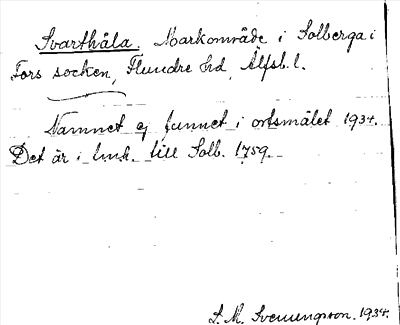 Svarthåla. Markområde i Solberga i
Fors socken, Flundre hd, Älfsb. l.
Namnet ej funnet i ortsmålet 1934.
Det är i till Solb. 1759.
S. M. Svenungsson. 1934.